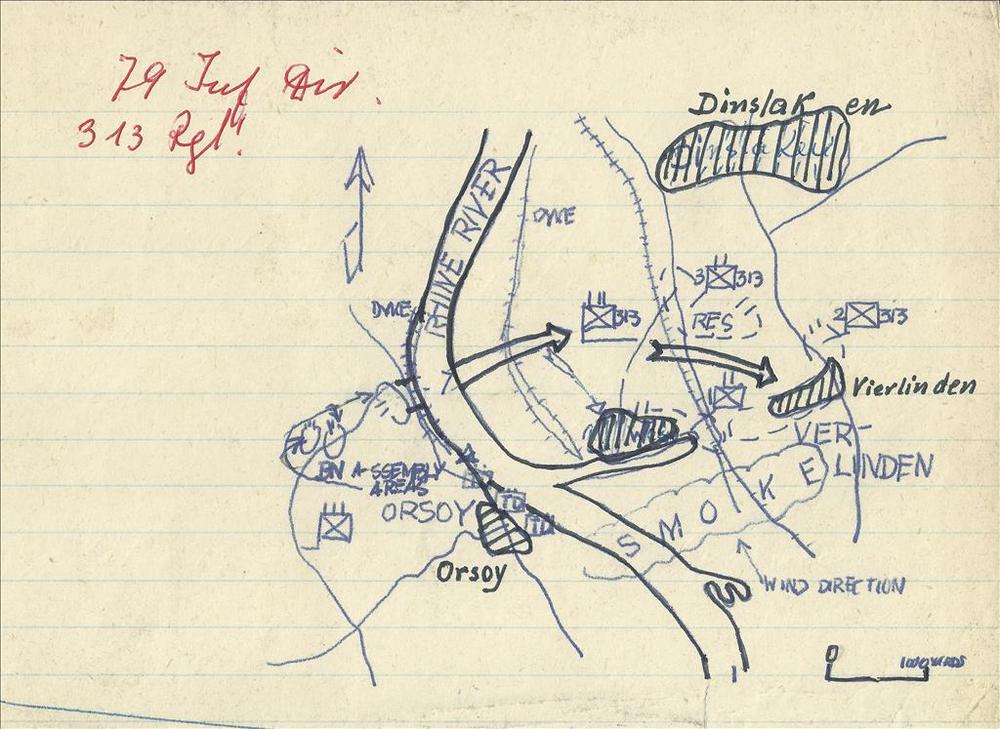 79 Inf Div.
313 Rgt.
Dinslaken
Dinslaken
RHINE RIVER
DYKE
DYKE
3 313
RES
313
2 313
Vierlinden
VER
LINDEN
BN ASSEMBLY
AREAS
ORSOY
TD
TD
Orsoy
SMOKE
WIND DIRECTION
0 1000 YARDS